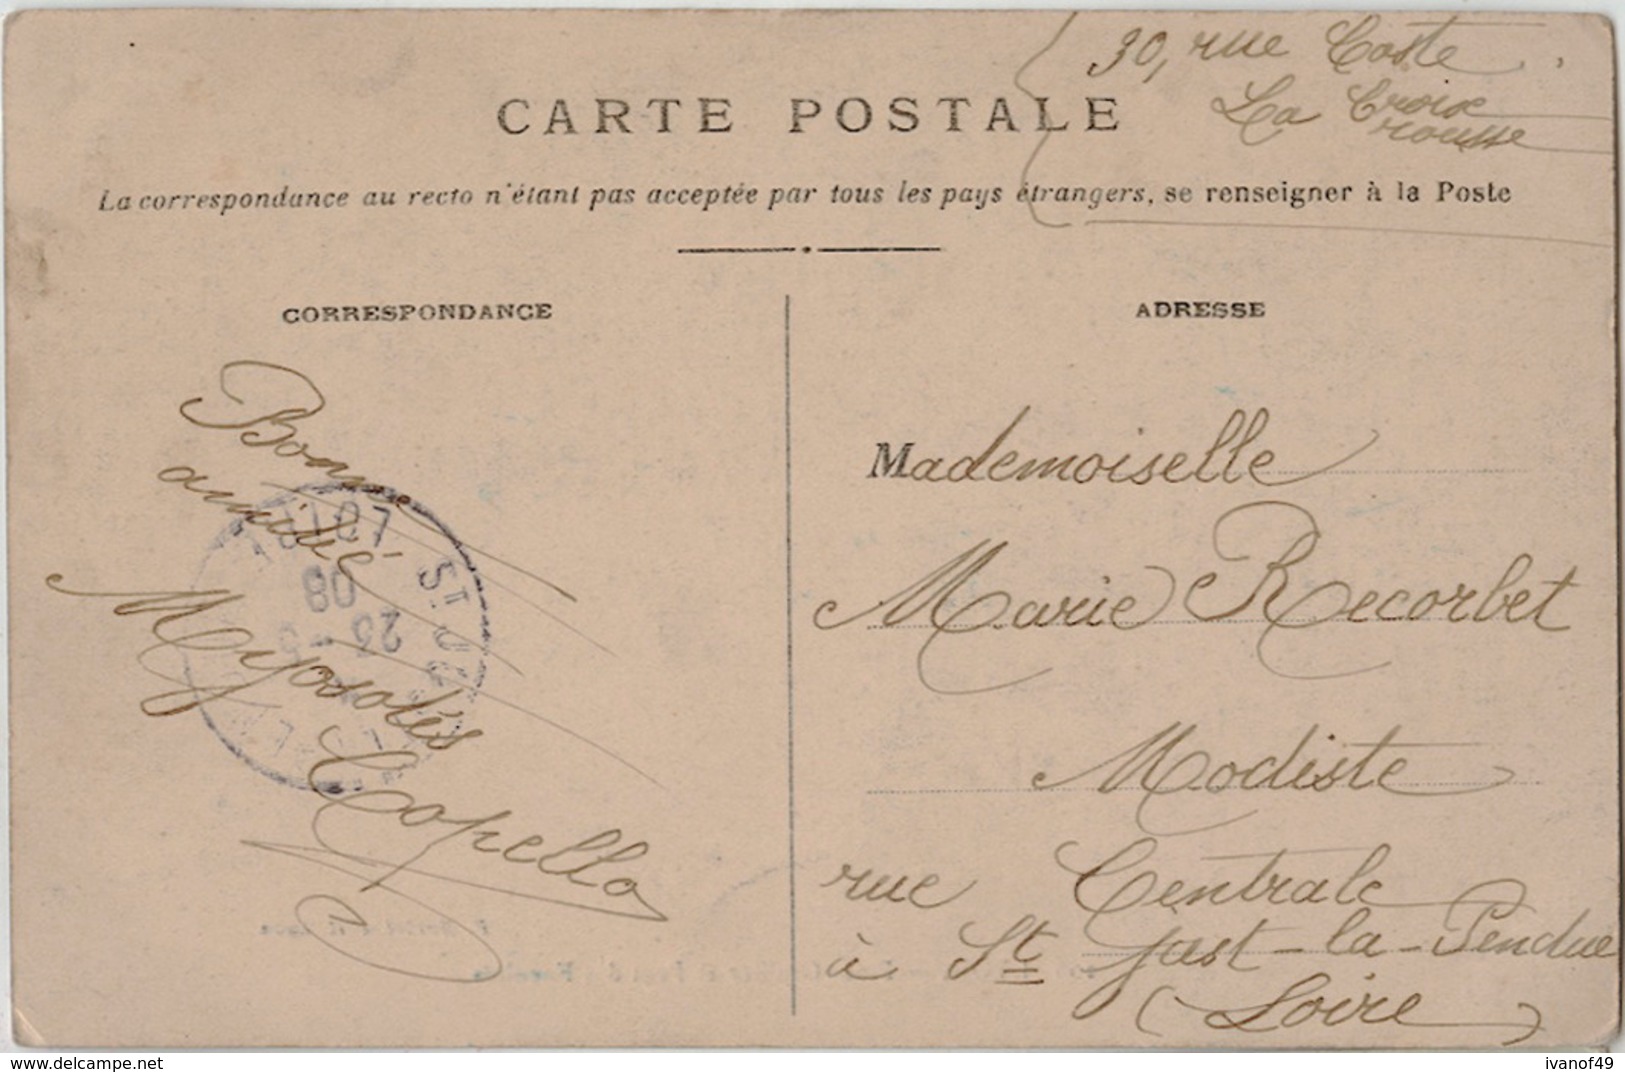 30, rue Coste
La Croix
rousse
CARTE POSTALE
La correspondance au recto n'étant pas acceptée par tous les pays étrangers, se renseigner à la Poste
CORRESPONDANCE
Bonne
amitié
Myosotis
Copello
ADRESSE
Mademoiselle
Marie Recorbet
Modiste
rue Centrale
à St Just-la-Pendue
(Loire)
ST JU
08
ivanof49